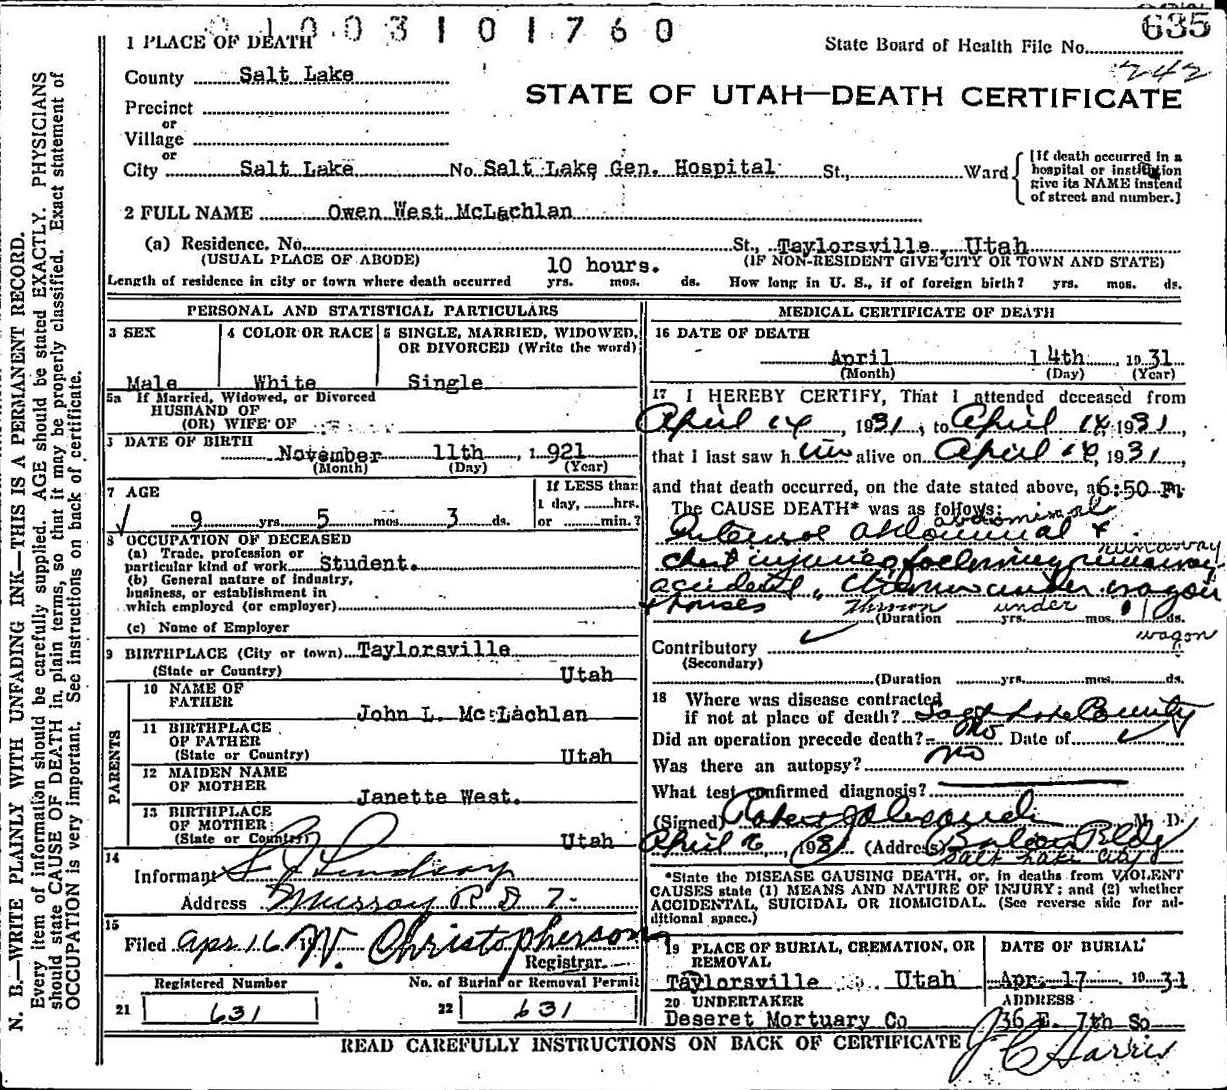 1003101760
635
1 PLACE OF DEATH
State Board of Health File No.
242
County Salt Lake
STATE OF UTAH—DEATH CERTIFICATE
Precinct
or
Village
or
City Salt Lake No. Salt Lake Gen. Hospital St., Ward
[If death occurred in a
hospital or institution
give its NAME instead
of street and number.]
2 FULL NAME Owen West McLachlan
(a) Residence. No. St., Taylorsville, Utah
(USUAL PLACE OF ABODE) (IF NON-RESIDENT GIVE CITY OR TOWN AND STATE)
10 hours.
Length of residence in city or town where death occurred yrs. mos. ds. How long in U. S., if of foreign birth? yrs. mos. ds.
PERSONAL AND STATISTICAL PARTICULARS
3 SEX
4 COLOR OR RACE
5 SINGLE, MARRIED, WIDOWED,
OR DIVORCED (Write the word)
Male White Single
5a If Married, Widowed, or Divorced
HUSBAND OF
(OR) WIFE OF
DATE OF BIRTH
November 11th, 1921
(Month) (Day) (Year)
7 AGE
If LESS than
1 day, hrs.
or min.?
9 yrs. 5 mos. 3 ds.
8 OCCUPATION OF DECEASED
(a) Trade, profession or
particular kind of work Student.
(b) General nature of industry,
business, or establishment in
which employed (or employer)
(c) Name of Employer
9 BIRTHPLACE (City or town) Taylorsville
(State or Country) Utah
PARENTS
10 NAME OF
FATHER
John L. McLachlan
11 BIRTHPLACE
OF FATHER
(State or Country) Utah
12 MAIDEN NAME
OF MOTHER
Janette West.
13 BIRTHPLACE
OF MOTHER
(State or Country) Utah
14
Informant S J Lindsay
Address Murray R D 7
15
Filed Apr 16 W. Christopherson
Registrar
Registered Number
No. of Burial or Removal Permit
21 631 22 631
MEDICAL CERTIFICATE OF DEATH
16 DATE OF DEATH
April 14th, 1931
(Month) (Day) (Year)
17 I HEREBY CERTIFY, That I attended deceased from
April 14, 1931, to April 14, 1931,
that I last saw him alive on April 14, 1931,
and that death occurred, on the date stated above, at 6:50 Pm.
The CAUSE DEATH* was as follows:
abdominal
Internal abdominal +
runaway
chest injuries following runaway
accident, thrown under wagon
+ horses thrown under
(Duration yrs. mos. ds.
wagon
Contributory
(Secondary)
(Duration yrs. mos. ds.
18 Where was disease contracted
if not at place of death? Salt Lake County
Did an operation precede death? No Date of
Was there an autopsy? no
What test confirmed diagnosis?
(Signed) Robert M. D.
April 6, 1931 (Address) Bldg
Salt Lake City
*State the DISEASE CAUSING DEATH, or, in deaths from VIOLENT
CAUSES state (1) MEANS AND NATURE OF INJURY; and (2) whether
ACCIDENTAL, SUICIDAL OR HOMICIDAL. (See reverse side for ad-
ditional space.)
19 PLACE OF BURIAL, CREMATION, OR
REMOVAL
DATE OF BURIAL
Taylorsville Utah Apr. 17 1931
20 UNDERTAKER
ADDRESS
Deseret Mortuary Co 36 E. 7th So
J C Harris
READ CAREFULLY INSTRUCTIONS ON BACK OF CERTIFICATE
N. B.—WRITE PLAINLY WITH UNFADING INK—THIS IS A PERMANENT RECORD.
Every item of information should be carefully supplied. AGE should be stated EXACTLY. PHYSICIANS
should state CAUSE OF DEATH in plain terms, so that it may be properly classified. Exact statement of
OCCUPATION is very important. See instructions on back of certificate.